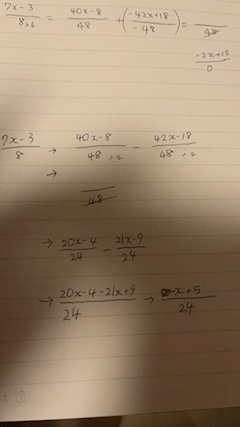 7x-3/8×6 = 40x-8/48 + (-42x+18/-48) = /48
-2x+10/0
7x-3/8 → 40x-8/48÷2 - 42x-18/48÷2
→
/48
→ 20x-4/24 - 21x-9/24
→ 20x-4-21x+9/24 → -x+5/24